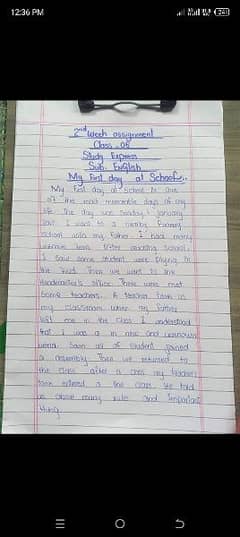 12:36 PM
2nd Week assignment
Class - 05
Study Express
Sub: English
My First day at School:-
My first day at school is one
of the most memorable days of my
life. The day was Sunday, 1 January
I went to a nearby Primary
school with my Father. I had many
before attending school.
I saw some student were playing in
the field. Then we went to the
Headmaster's office. There we met
Some teachers. A teacher took in
my classroom. When my father
left me in the class I understood
that I was in a new and unknown
world. Soon all of student joined
a assembly. Then we returned to
the class. after a my teacher
entered in the class. He told
us about many rules and Important
thing.